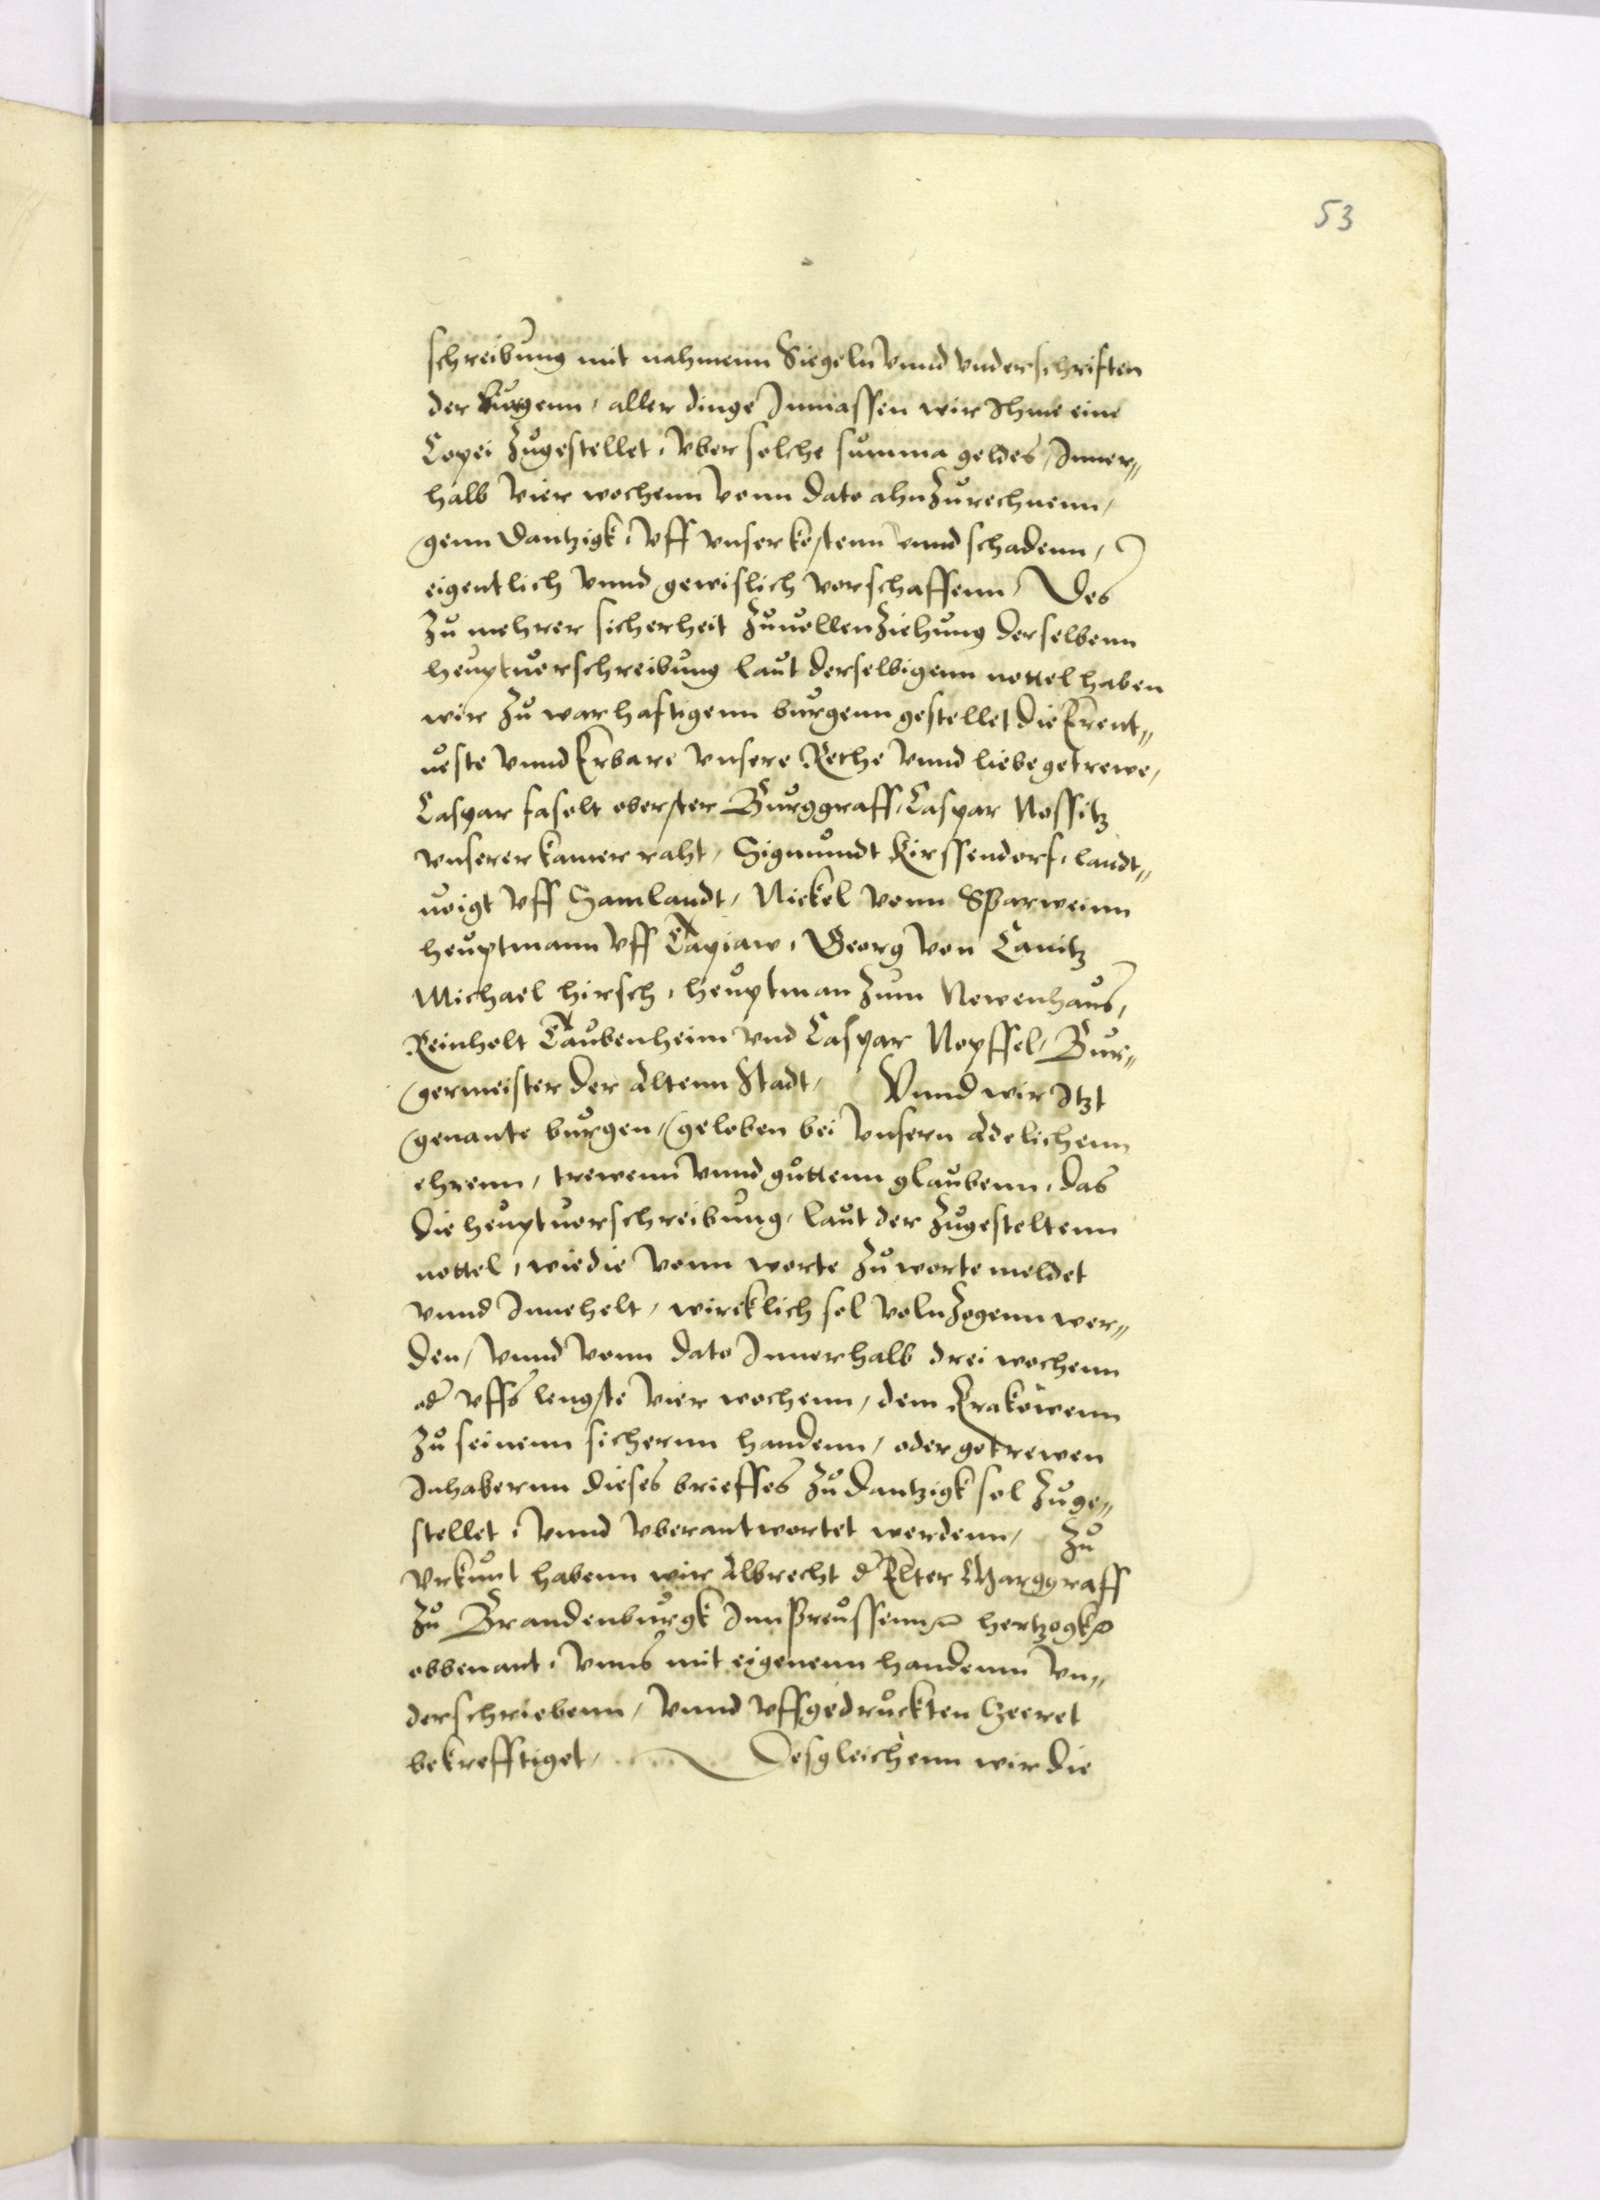 53
schreibung mit nahmenn Siegeln vnnd vnderschrifften
der burgenn, aller dinge Inmassen wir Ihme eine
Copei zugestellet, vber solche summa geldes, Inner„
halb vier wochenn vonn dato ahnzurechnenn,
genn Dantzigk, vff vnser kostenn vnnd schadenn,
eigentlich vnnd gewislich vorschaffenn, Des
zu mehrer sicherheit zuuollenziehung derselbenn
heuptuorschreibung laut derselbigenn nottel haben
wir zu warhaftigenn burgenn gestellet die Erent„
ueste vnnd Erbare vnsere Rethe vnnd liebe getrewe,
Caspar fasolt oberster Burggraff, Caspar Nossitz
vnserer kamer raht, Sigmundt Kirssendorf, landt„
uoigt vff Samlandt, Nickel vonn Sparweinn
heuptmann vff Tapiaw, Georg von Canitz
Michael hirsch, heuptman zum Newenhaus,
Reinholt Taubenheim vnd Caspar Nopffel, Bur„
germeister der Altenn Stadt, Vnnd wir Itzt
genante burgen, geloben bei vnsern Adelichenn
ehrenn, trewenn vnnd guttenn glaubenn, das
die heuptuorschreibung, laut der zugesteltenn
nottel, wie die vonn worte zu worte meldet
vnnd Innehelt, wircklich sol volnzogenn wer„
den, vnnd vonn dato Innerhalb drei wochenn
od vffs lengste vier wochenn, dem Krakowenn
zu seinenn sichernn handenn, oder getrewen
Inhabernn dieses brieffes zu Dantzigk sol zuge„
stellet, vnnd vberantwortet werdenn, Zu
vrkunt habenn wir Albrecht d Elter Marggraff
zu Brandenburgk Inn Preussenn hertzogk
obbenant, vnns mit eigenenn handenn vn„
derschriebenn, vnnd vffgedruckten Secret
bekrefftiget, Desgleichenn wir die